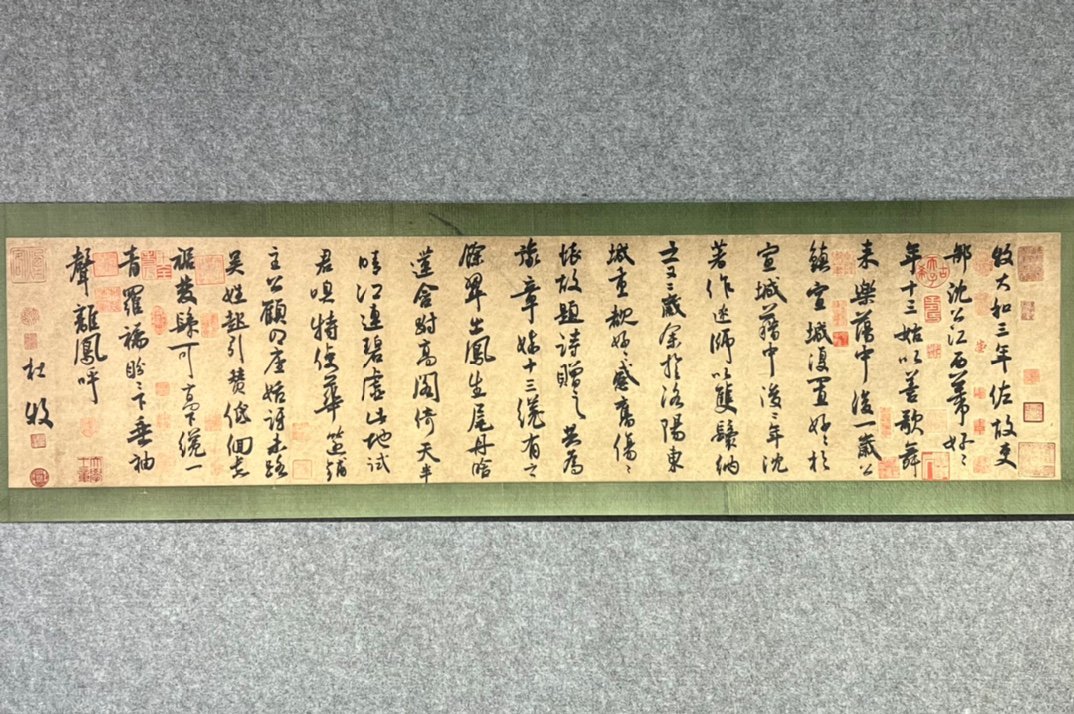 牧大和三年佐故吏
部沈公江西幕好〻
年十三始以善歌舞
来樂籍中後一歲公
鎮宣城復置好〻於
宣城籍中後三年沈
著作述師以雙鬟納
之又二歲余於洛陽東
城重覩好〻感舊傷
懷故題詩贈之君為
豫章姝十三纔有
餘翠茁鳳生尾丹
蓮含跗高閣倚天半
晴江連碧虛此地試
君唱特使華筵鋪
主公顧四座始訝来踟
吳娃起引贊低佪
裾雙鬟可高下纔一
青羅襦盼〻下垂袖
聲離鳳呼
杜牧